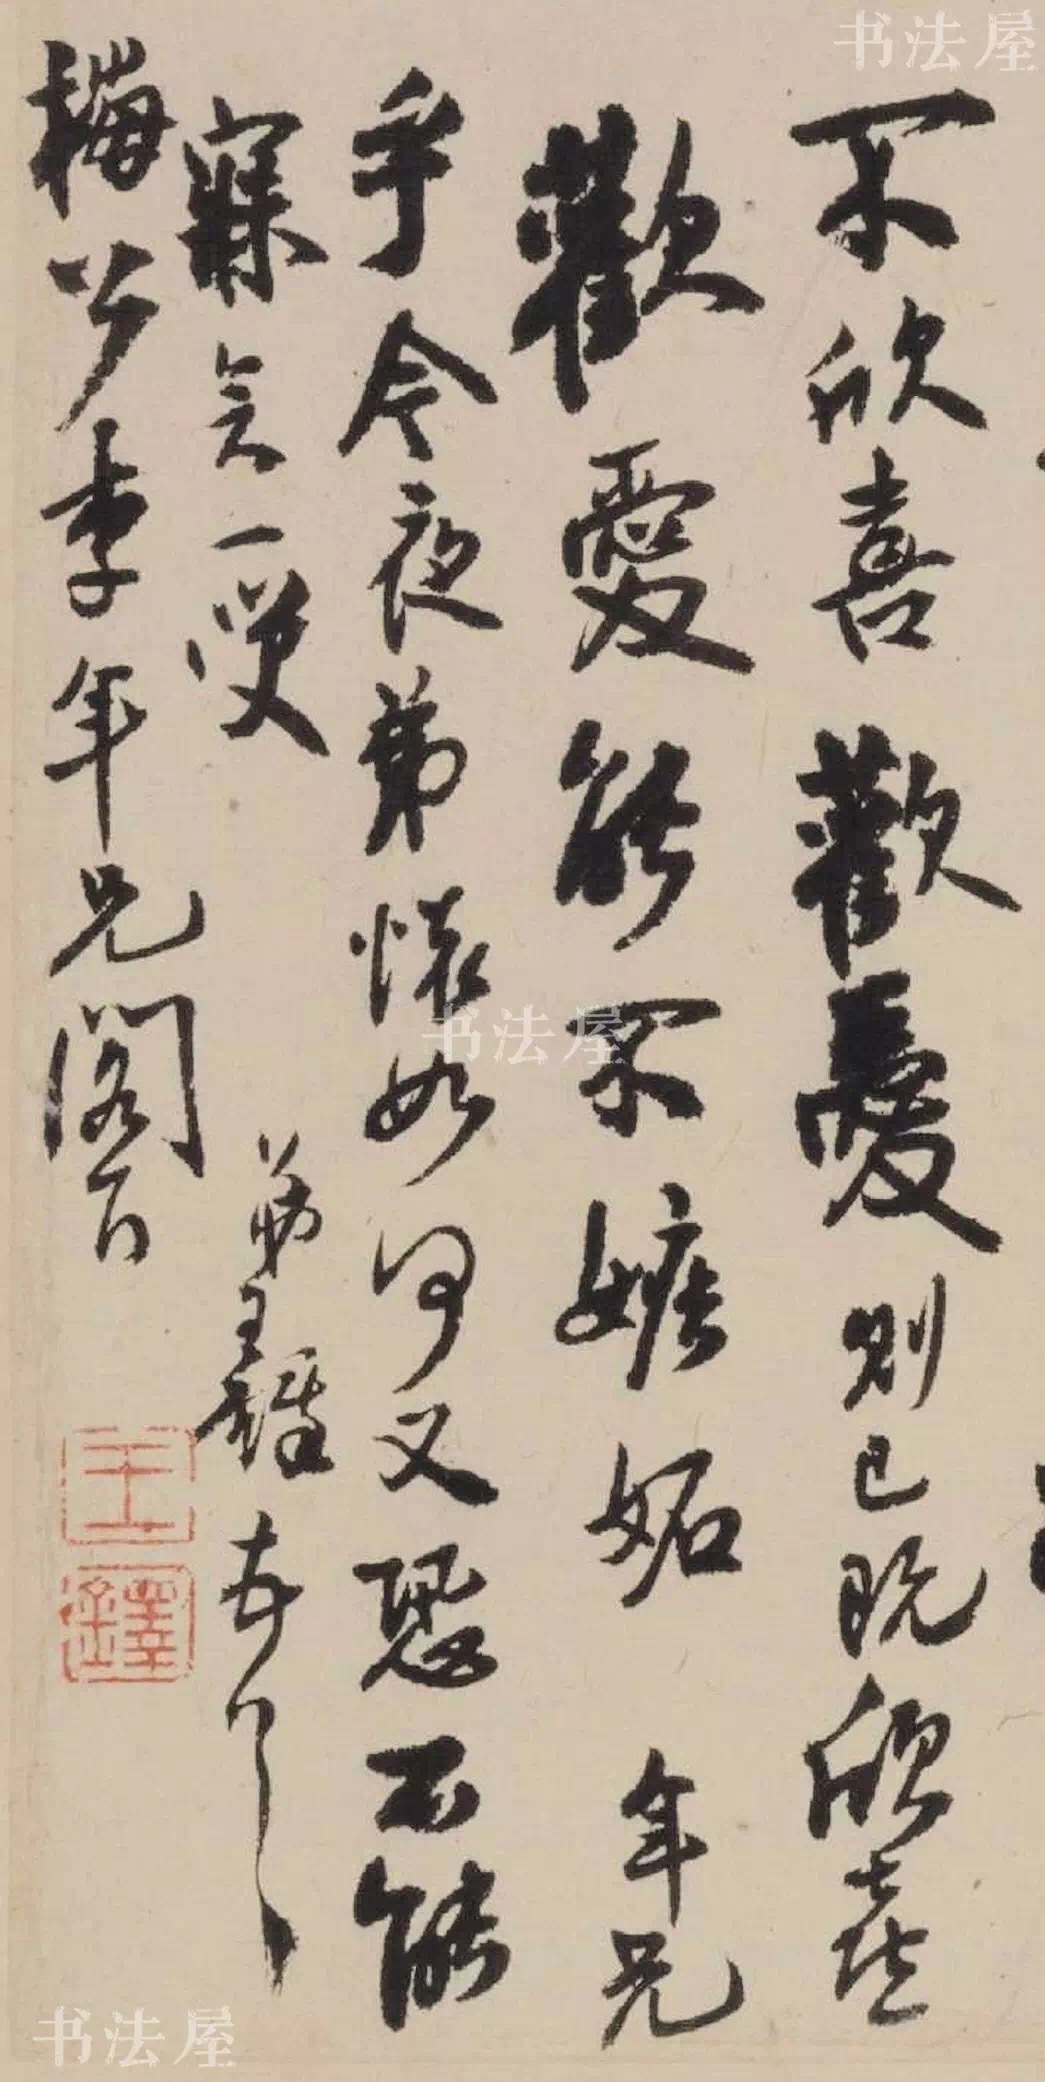 书法屋
不欣喜歡愛則已既欣喜
歡愛能不嫉妬年兄
乎今夜弟懷如何又恐不能
寐矣一嘆
弟王鐸頓首
梅公李年兄閣下
书法屋
王
鐸
书法屋